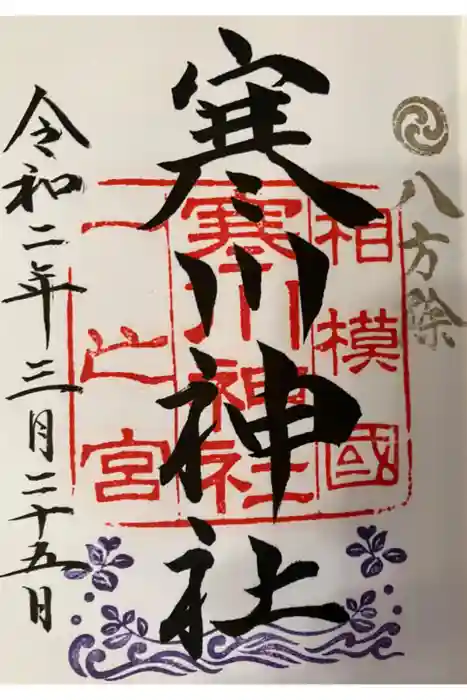 八方除
相模國
寒川神社
一之宮
寒川神社
令和二年三月二十五日